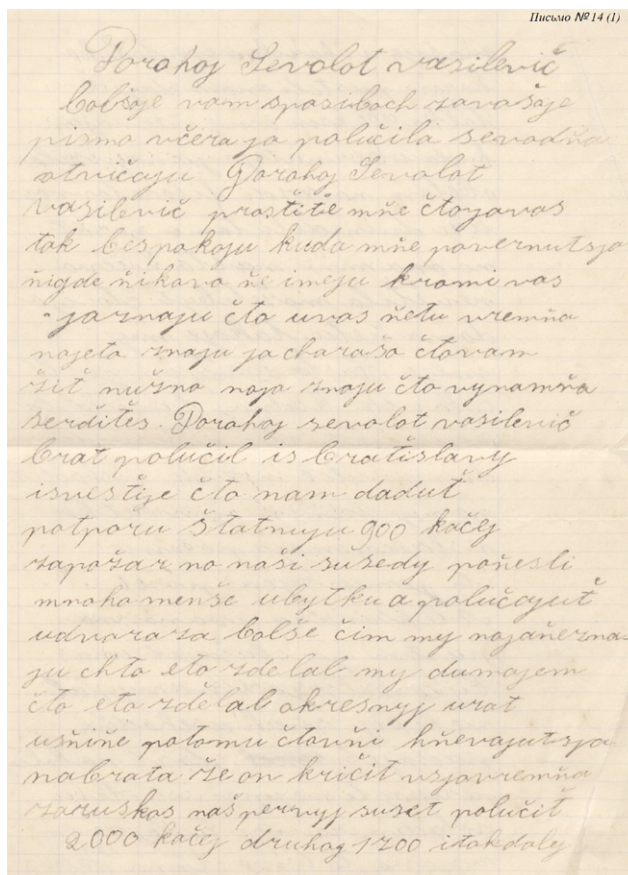 Письмо № 14 (1)
Dorahoj Sevolot vasilevič
bolšoje vam spasiboch zavašoje
pismo včera ja polučila sevodňa
otvičaju Dorahoj Sevolot
vasilevič prostitě mňe čtojavas
tak bespokoju kuda mňe povernutsja
ňigde ňikavo ňe imeju kromi vas
jaznaju čto uvas ňetu vremňa
najeto znaju ja charašo čtovam
žiť nužno noja znaju čto vynamňa
serditěs. Dorahoj sevolot vasilevič
brat polučil is bratislavy
isvestije čto nam daduť
potporu štatnuju 900 kačej
zapožar no naši susedy poňesli
mnoho menše ubytku a polučajuť
udvaraza bolše čim my nojaňezna-
ju chto eto zdelal my dumajem
čto eto zdělal okresnyj urat
usňiňe potomu čtovňi hňevajutsja
nabrata že on kričit vsjovremňa
zaruskos naš pervyj suset polučit
2000 kačej druhoj 1700 itakdalej